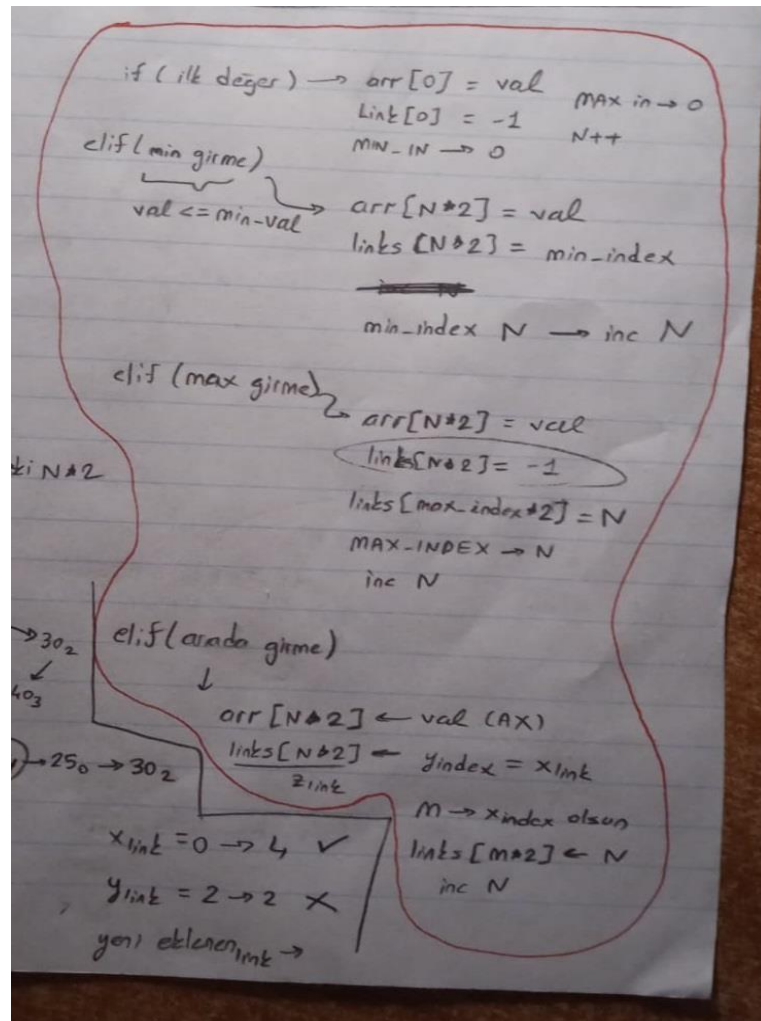 if (ilk değer) → arr[0] = val
Link[0] = -1
MAX in → 0
MIN_IN → 0
N++
elif (min girme)
val <= min-val
→ arr[N*2] = val
links[N*2] = min_index
min_index N → inc N
elif (max girme)
arr[N*2] = val
links[N*2] = -1
links[max_index*2] = N
MAX-INDEX → N
inc N
ki N*2
→ 30₂
40₃
elif (arada girme)
↓
arr[N*2] ← val (AX)
links[N*2] ← yindex = xlink
zlink
→ 25₀ → 30₂
m → xindex olsun
links[m*2] ← N
inc N
xlink = 0 → 4 ✓
ylink = 2 → 2 ✗
yeni eklenen link →